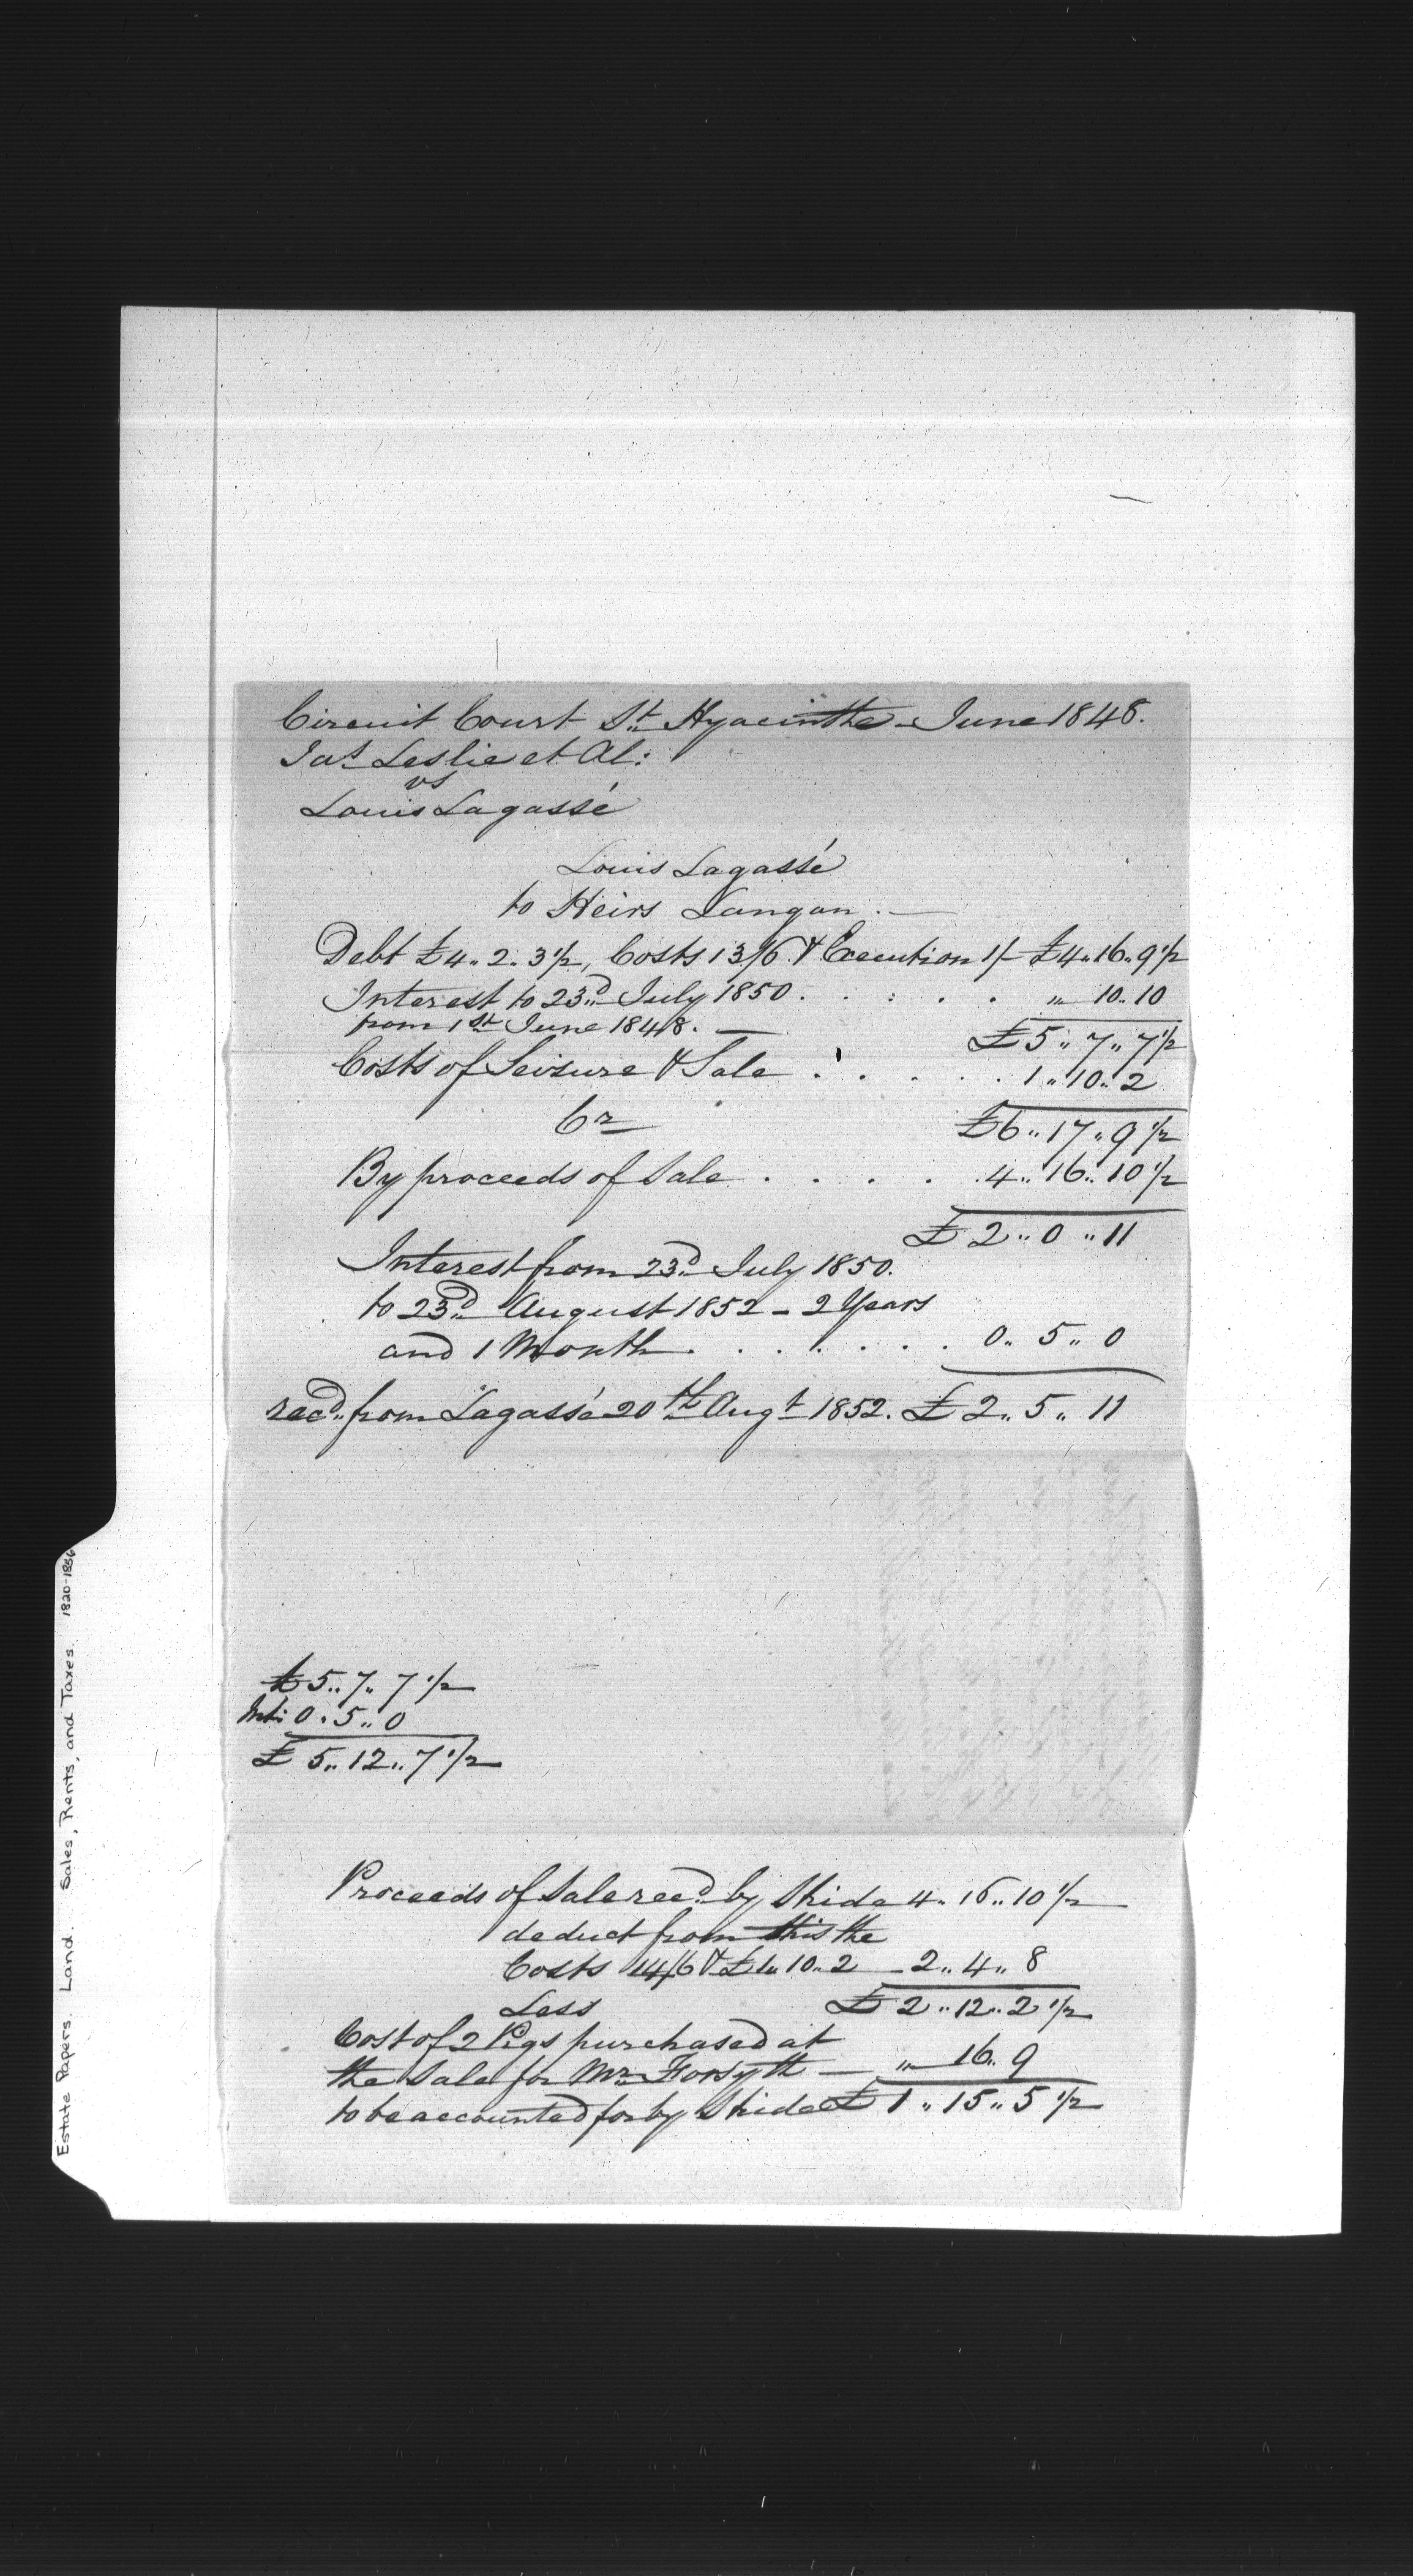 Circuit Court St Hyacinthe June 1848.
Jas Leslie et Al:
vs
Louis Lagassé
Louis Lagassé
to Heirs Langan. —
Debt £4.. 2.. 3½, Costs 13/6 & Execution 1/- £4.. 16.. 9½
Interest to 23d July 1850 . . . . . " 10.. 10
from 1st June 1848. — £5.. 7.. 7½
Costs of Seizure & Sale . . . . . 1.. 10.. 2
Cr £6.. 17.. 9½
By proceeds of Sale . . . . . 4.. 16.. 10½
£2.. 0.. 11
Interest from 23d July 1850.
to 23d August 1852 - 2 Years
and 1 Month . . . . . . 0.. 5.. 0
recd from Lagassé 20th Augt 1852. £2.. 5.. 11
£5.. 7.. 7½
Int: 0.. 5.. 0
£5.. 12.. 7½
Proceeds of Sale recd by 4.. 16.. 10½
deduct from this the
Costs 14/6 & £1.. 10.. 2 2.. 4.. 8
Less £2.. 12.. 2½
Cost of 2 Pigs purchased at
the Sale for Mr Forsyth — " 16.. 9
to be accounted for by £1.. 15.. 5½
Estate Papers. Land. Sales, Rents, and Taxes. 1820-1856